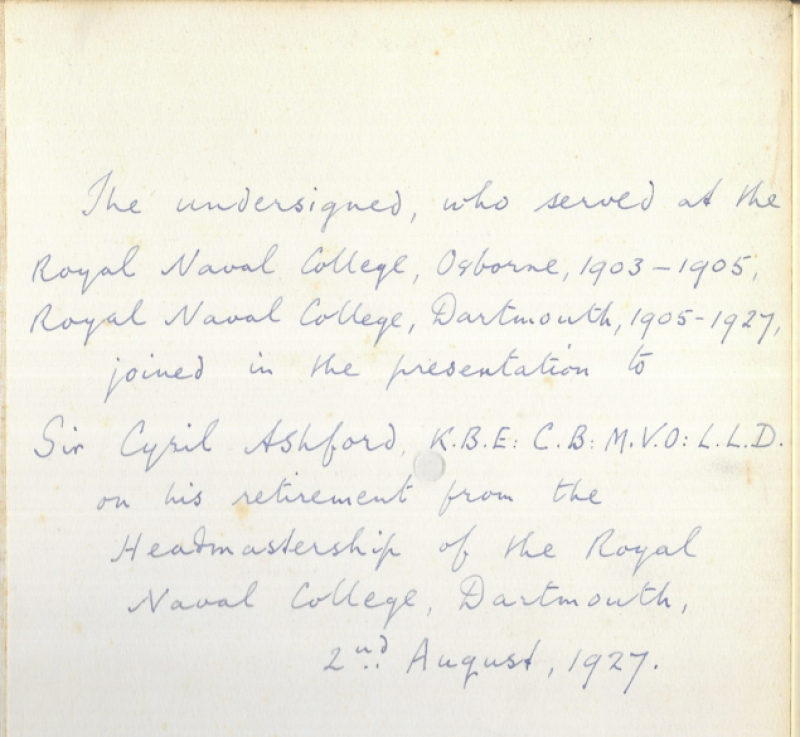 The undersigned, who served at the
Royal Naval College, Osborne, 1903-1905,
Royal Naval College, Dartmouth, 1905-1927,
joined in the presentation to
Sir Cyril Ashford, K.B.E: C.B: M.V.O: L.L.D.
on his retirement from the
Headmastership of the Royal
Naval College, Dartmouth,
2nd August, 1927.